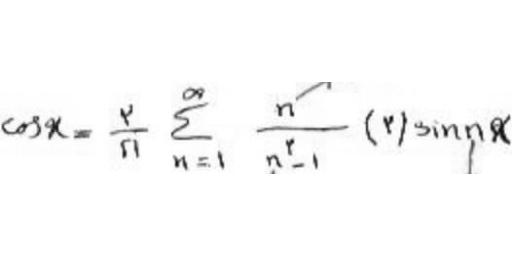 cosx = ۲/π ∑_{n=1}^{∞} n/(n^۲-1) (۲) sin nx